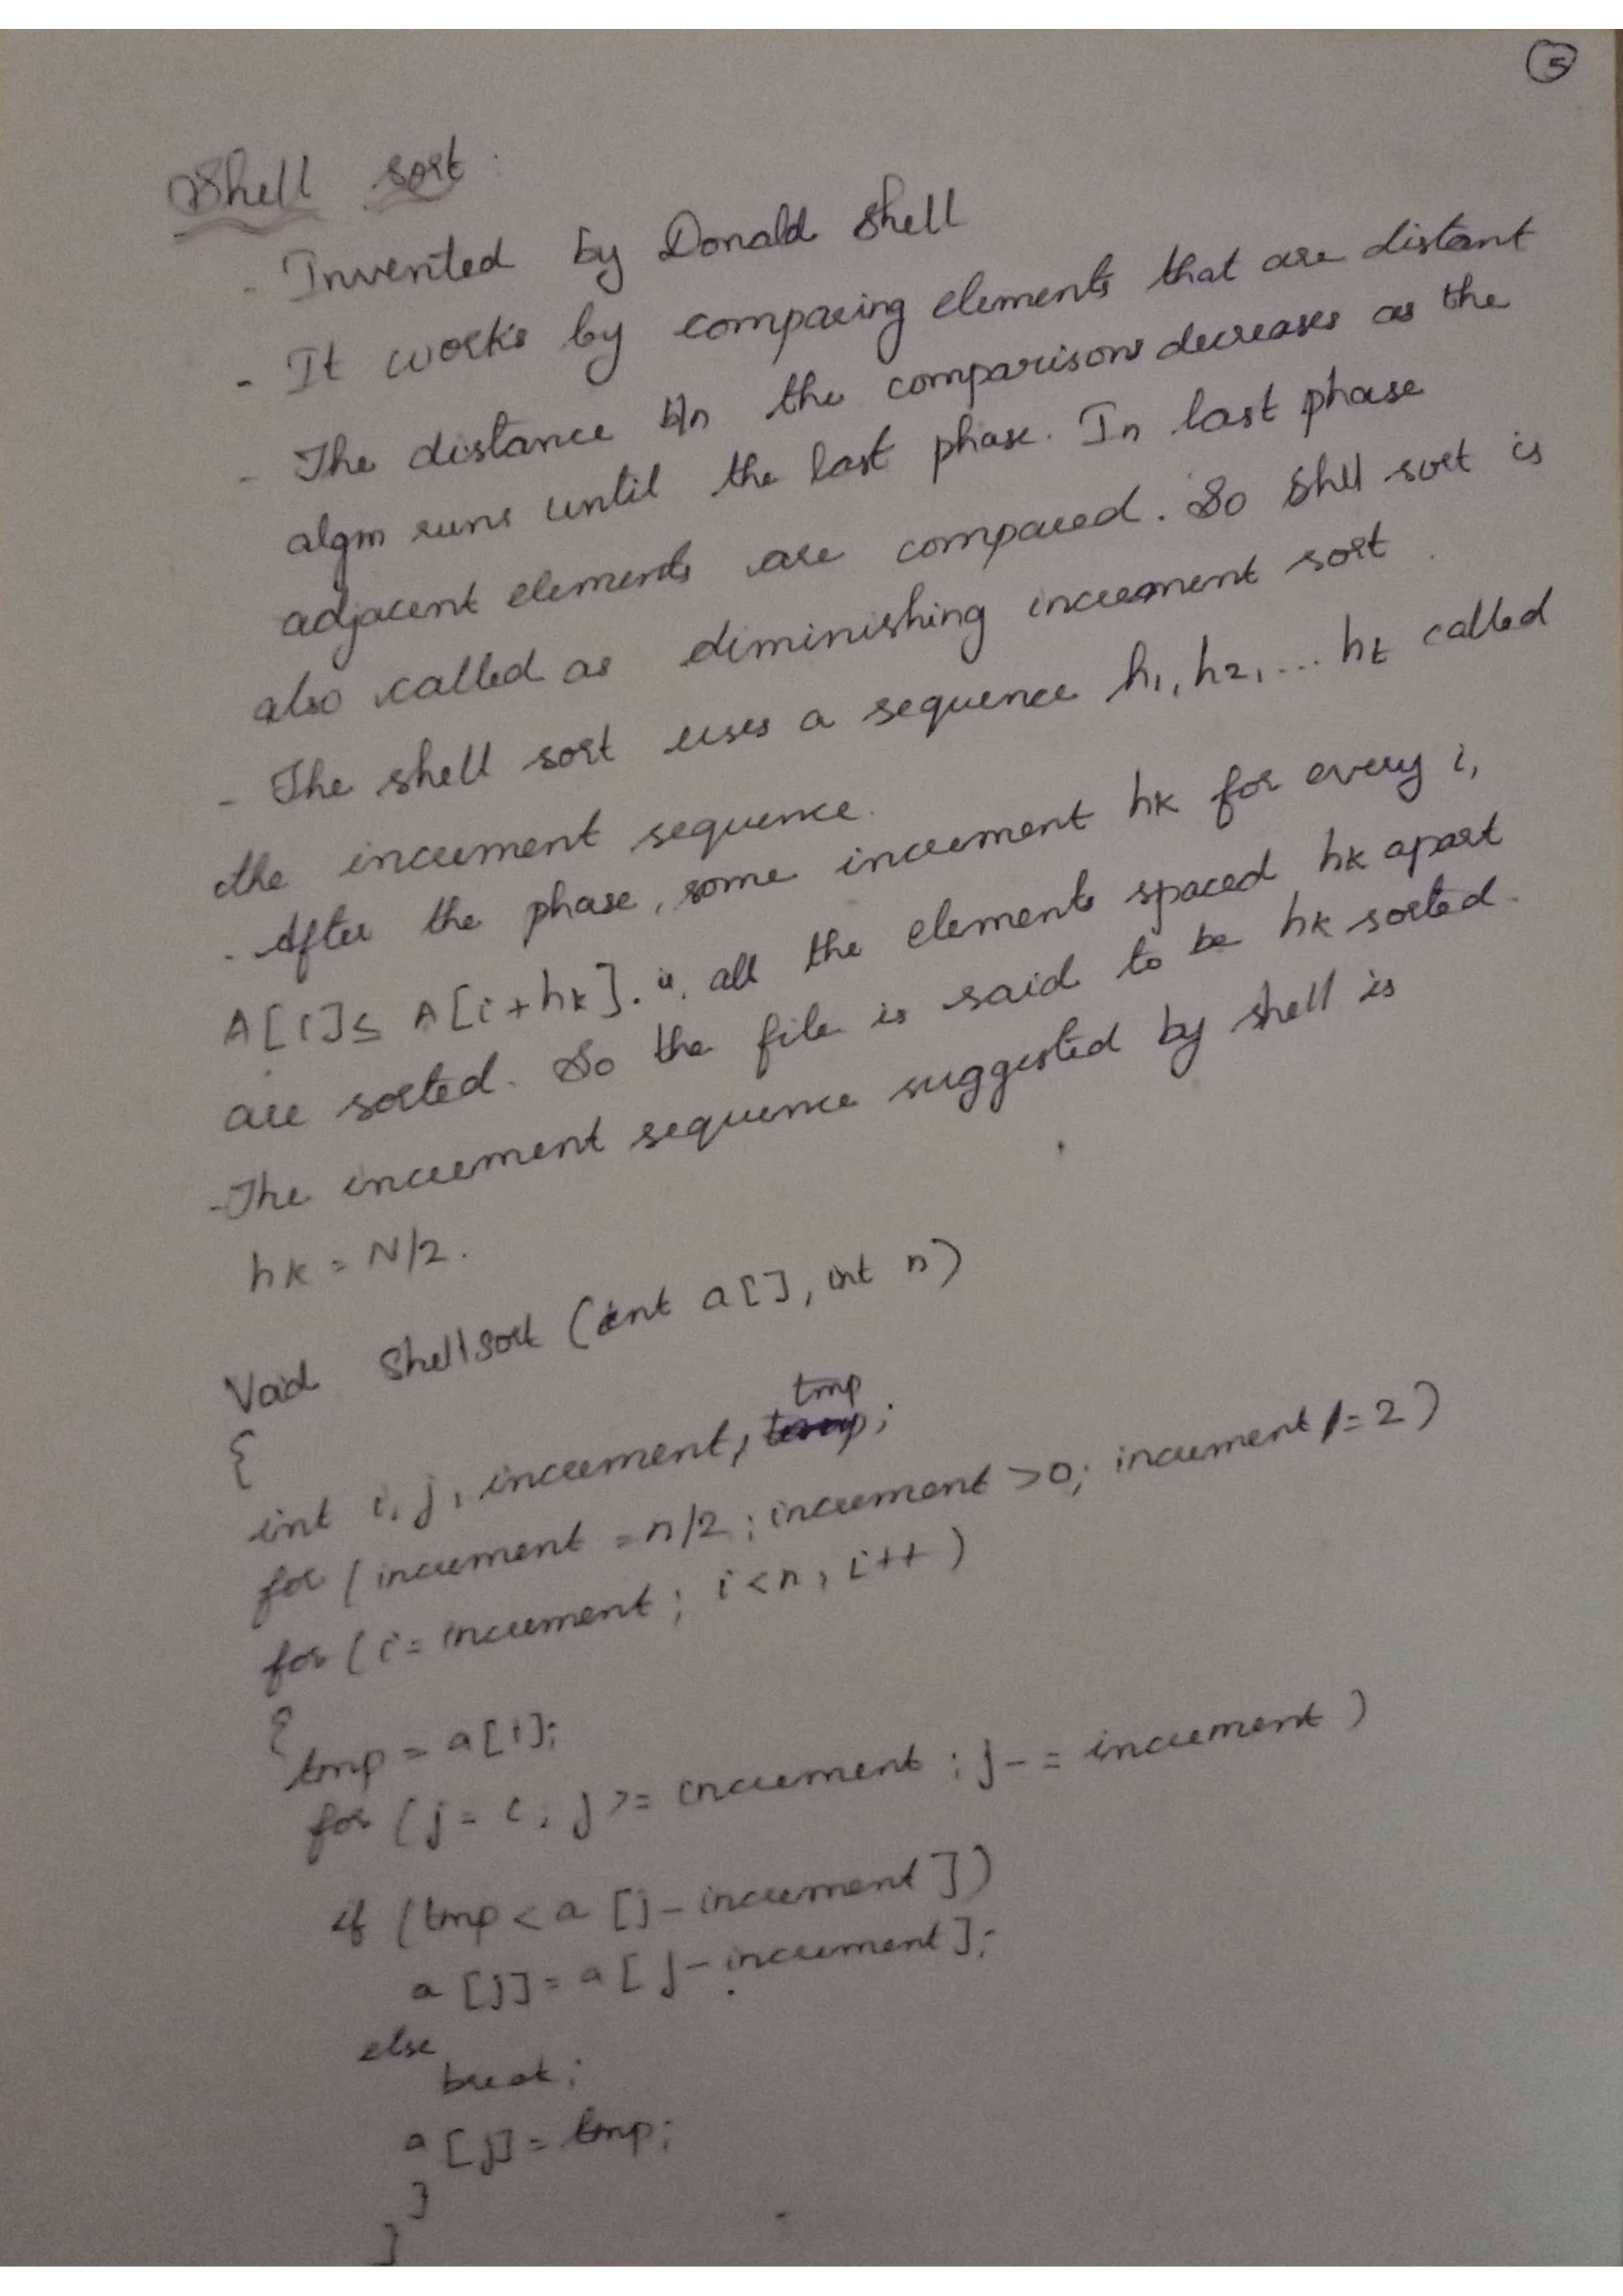 5
Shell sort
- Invented by Donald Shell
- It works by comparing elements that are distant
- The distance b/n the comparisons decreases as the
algm runs until the last phase. In last phase
adjacent elements are compared. So Shell sort is
also called as diminishing increment sort.
- The shell sort uses a sequence h1, h2, ... ht called
the increment sequence.
- After the phase, some increment hk for every i,
A[i] ≤ A[i+hk]. ie, all the elements spaced hk apart
are sorted. So the file is said to be hk sorted.
- The increment sequence suggested by shell is
hk = N/2.
Void Shellsort (int a[], int n)
{
int i, j, increment, tmp;
for (increment = n/2; increment >0; increment /= 2)
for (i= increment; i<n; i++)
{
tmp = a[i];
for (j = i; j >= increment; j-= increment)
if (tmp < a [j- increment])
a [j] = a [j- increment];
else
break;
a [j] = tmp;
}
}